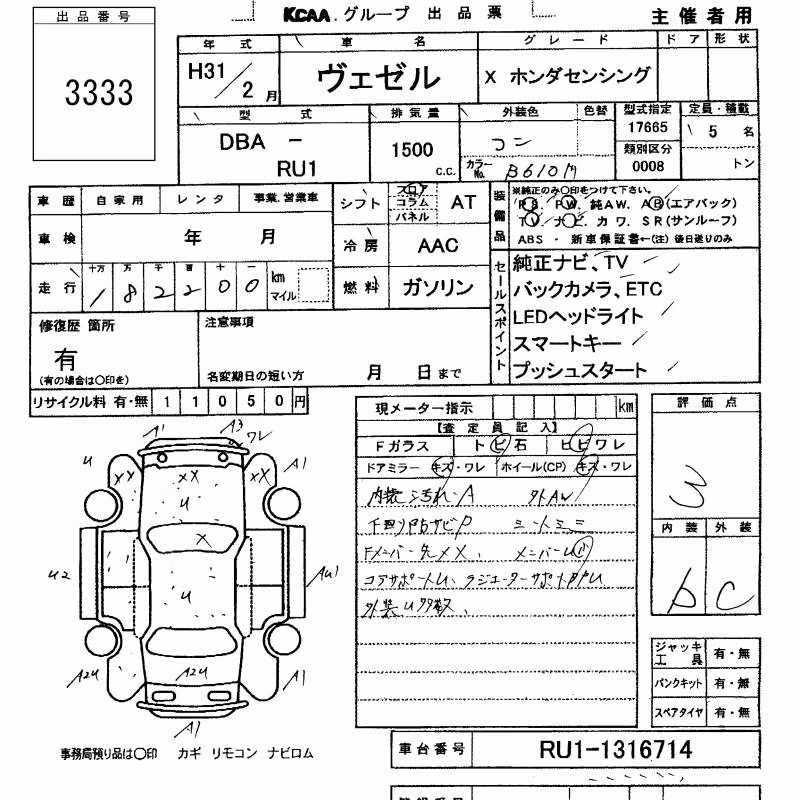 出品番号
3333
KCAA グループ 出品票
主催者用
年式 車名 グレード ドア 形状
H31/2月 ヴェゼル X ホンダセンシング
型式 排気量 外装色 色替 型式指定 定員・積載
DBA - RU1 1500 c.c. コン カラーNo. B610M 17665 5名
類別区分 0008 トン
車歴 自家用 レンタ 事業.営業車
車検 年 月
走行 十万 万 千 百 十 一 km マイル
182200
シフト フロア コラム パネル AT
冷房 AAC
燃料 ガソリン
装備品 ※純正のみ○印をつけて下さい。
PS. PW. 純AW. AB(エアバック)
TV. ナビ. カワ. SR(サンルーフ)
ABS ・ 新車保証書←(注)後日送りのみ
セールスポイント
純正ナビ、TV
バックカメラ、ETC
LEDヘッドライト
スマートキー
プッシュスタート
修復歴 箇所
有
(有の場合は○印を)
注意事項
名変期日の短い方 月 日まで
リサイクル料 有・無 11050円
現メーター指示 km
【査定員記入】
Fガラス トビ石 ヒビワレ
ドアミラー キズ・ワレ ホイール(CP) キズ・ワレ
内装汚れ・A 外AW
下廻り内サビP
Fメンバー先XX、メンバーU小
コアサポートU、ラジエーターサポートU
外装U多数、
評価点
3
内装 外装
b C
A1 A3 ワレ
U XX XX XX A1
U
X
U2 U AU1
A2U A2U A1
A1
ジャッキ工具 有・無
パンクキット 有・無
スペアタイヤ 有・無
事務局預り品は○印 カギ リモコン ナビロム
車台番号 RU1-1316714